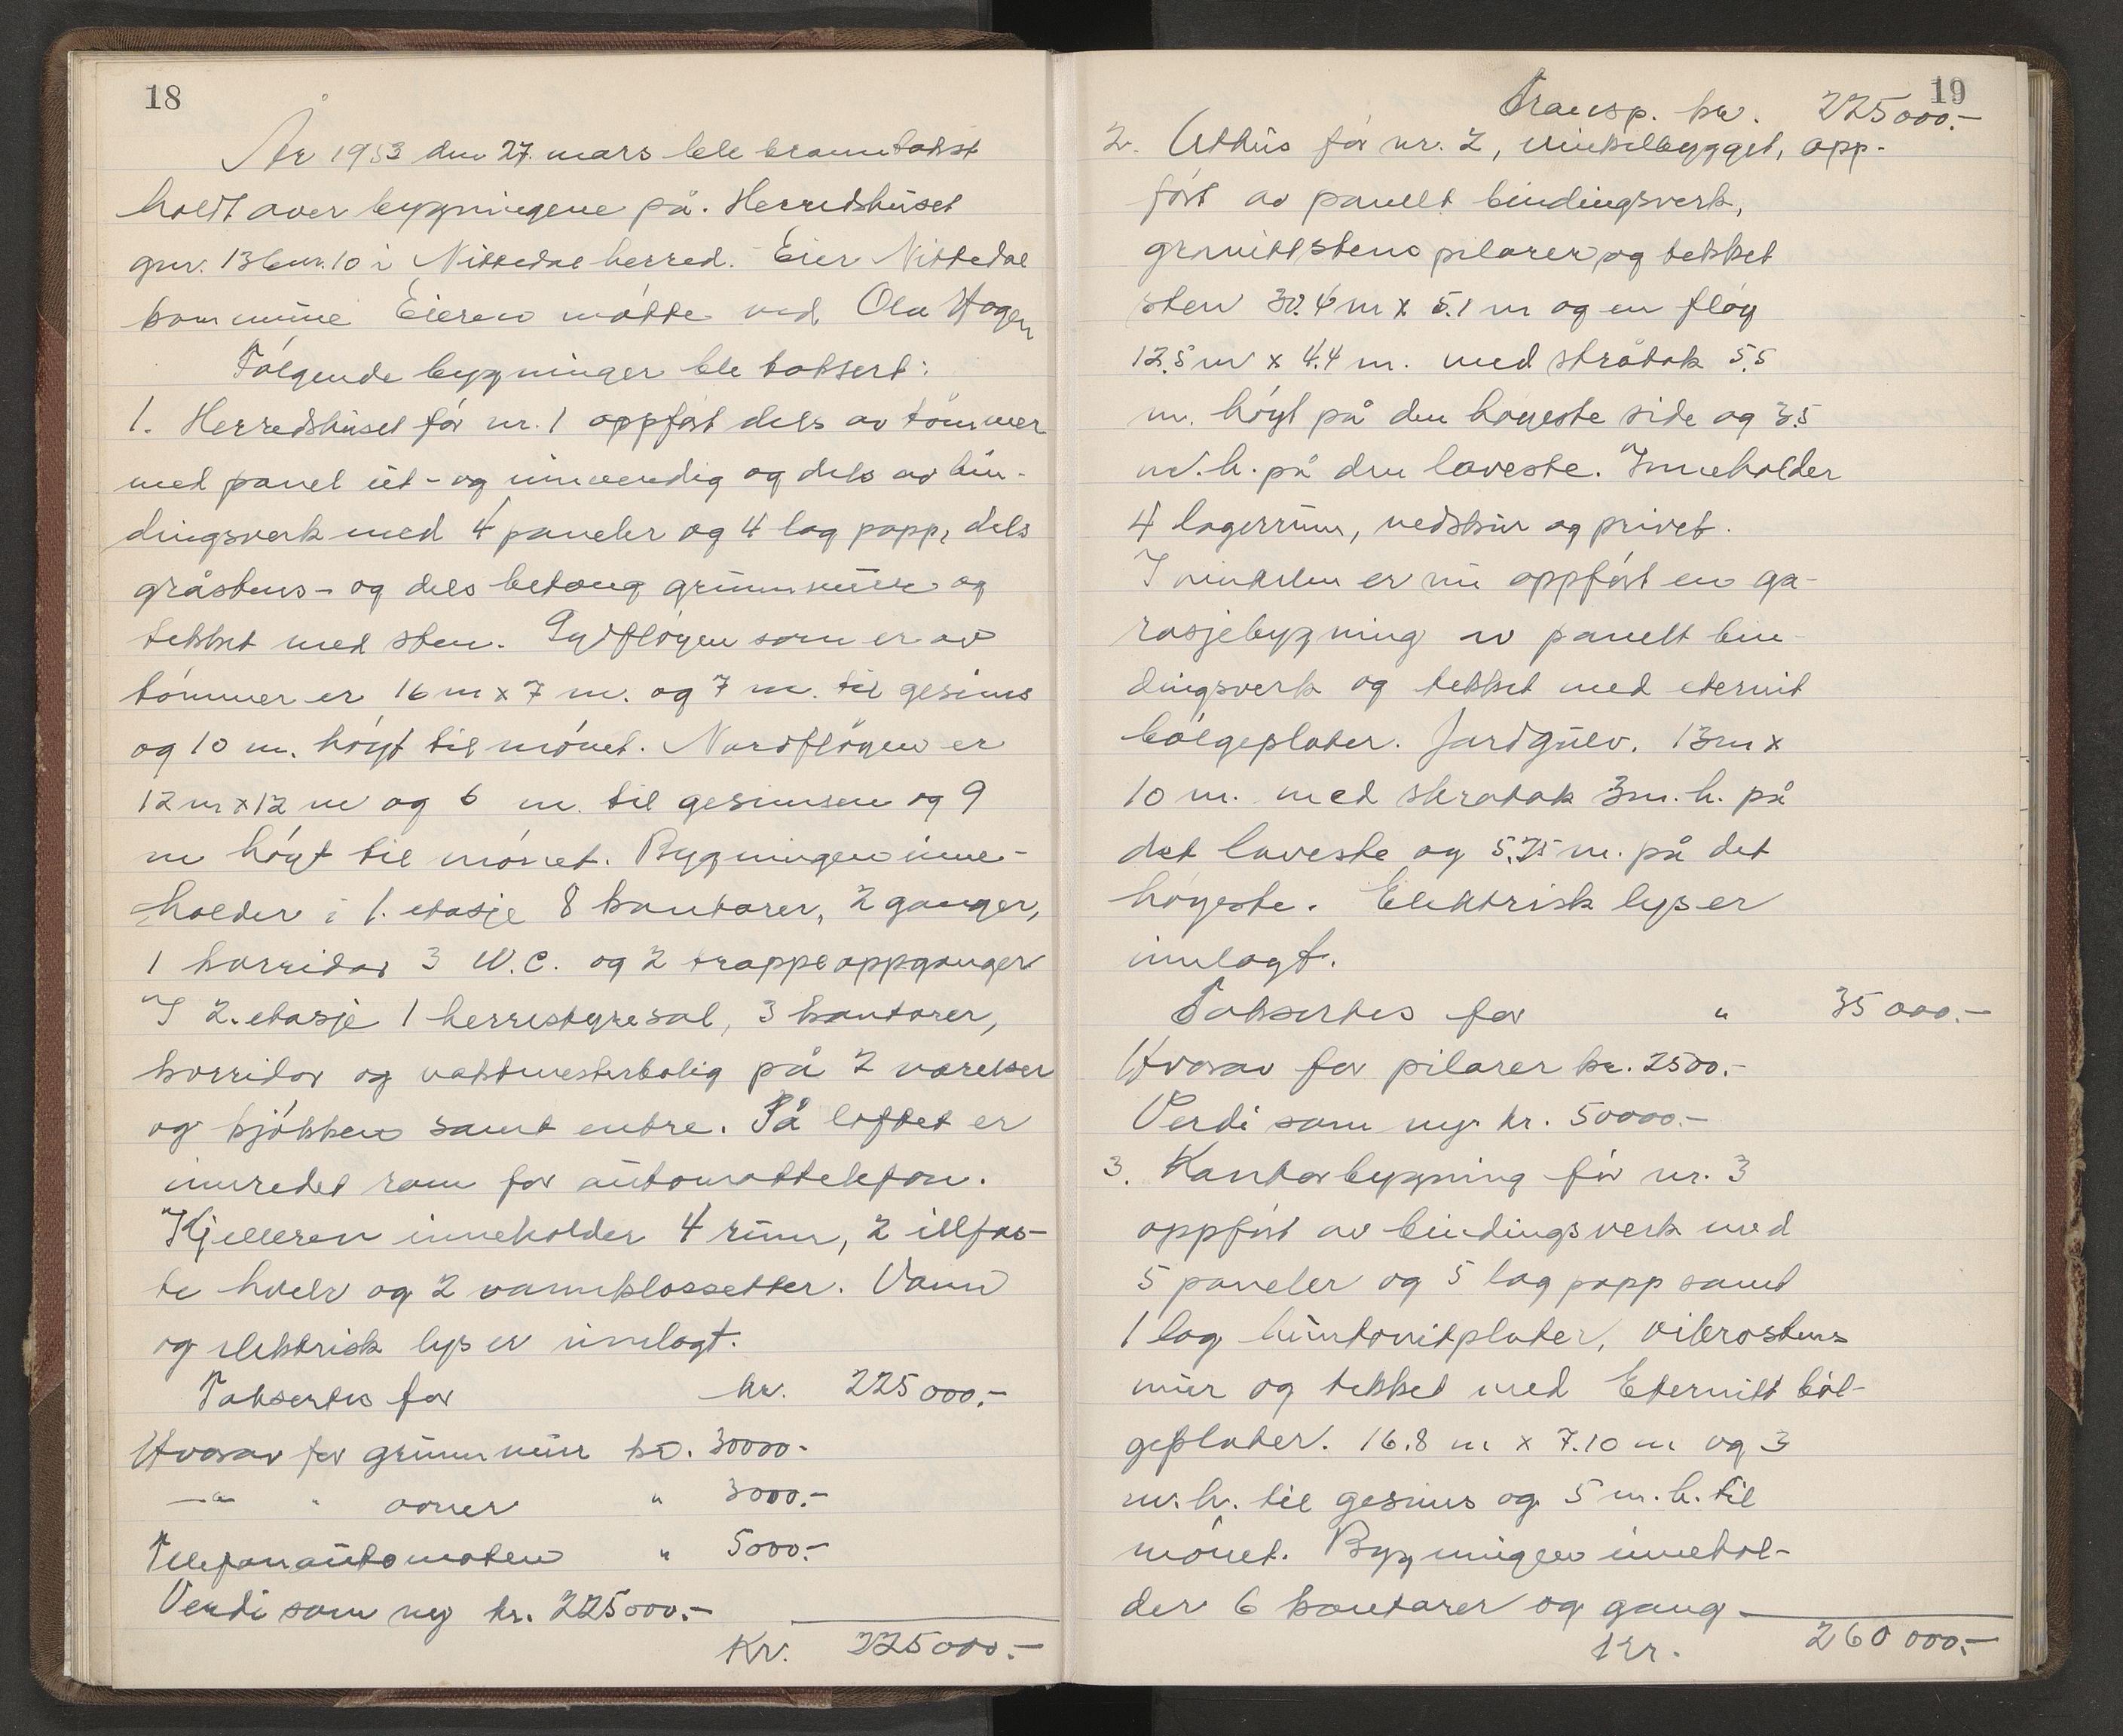 18
År 1953 den 27. mars ble branntakst
holdt over bygningene på. Herredshuset
gnr. 13 bnr. 10 i Nittedal herred. Eier Nittedal
kommune Eieren møtte ved Ola Hagen
Følgende bygninger ble taksert:
1. Herredshuset før nr. 1 oppført dels av tømmer
med panel ut- og innvendig og dels av bin-
dingsverk med 4 paneler og 4 lag papp, dels
gråstens- og dels betong grunnmure og
tekket med sten. Sydfløyen som er av
tømmer er 16 m x 7 m. og 7 m. til gesims
og 10 m. høyt til mønet. Nordfløyen er
12 m x 12 m og 6 m. til gesimsen og 9
m høyt til mønet. Bygningen inne-
holder i 1. etasje 8 kontorer, 2 ganger,
1 korridor 3 W.C. og 2 trappeoppganger
I 2. etasje 1 herrestyresal, 3 kontorer,
korridor og vaktmesterbolig på 2 værelser
og kjøkken samt entre. På loftet er
innredet rom for automattelefon.
Kjelleren inneholder 4 rum, 2 illfas-
te hvelv og 2 vannklossetter. Vann
og elektrisk lys er innlagt.
Taksertes for kr. 225 000.-
Hvorav for grunnmur kr. 30000-
-"- " ovner " 3000.-
Telefonautomaten " 5000.-
Verdi som ny kr. 225000.-
Kr. 225000.-
19
Transp. kr. 225000.-
2. Uthus før nr. 2, vinkelbygget, opp-
ført av panelt bindingsverk,
granittstens pilarer og tekket
sten 30.4 m x 5.1 m og en fløy
12.5 m x 4.4 m. med skråtak 5.5
m. høyt på den høyeste side og 3.5
m. h. på den laveste. Inneholder
4 lagerrum, vedskur og privet.
I vinkelen er nu oppført en ga-
rasjebygning av panelt bin-
dingsverk og tekket med eternit
bølgeplater. Jordgulv. 13 m x
10 m. med skråtak 3 m. h. på
det laveste og 5.25 m. på det
høyeste. Elektrisk lys er
innlagt.
Taksertes for " 35 000.-
Hvorav for pilarer kr. 2500.-
Verdi som ny kr. 50000.-
3. Kontorbygning før nr. 3
oppført av bindingsverk med
5 paneler og 5 lag papp samt
1 lag huntonitplater, vibrostens
mur og tekket med Eternitt bøl-
geplater. 16.8 m x 7.10 m og 3
m. h. til gesims og 5 m. h. til
mønet. Bygningen innehol-
der 6 kontorer og gang
Kr. 260 000.-